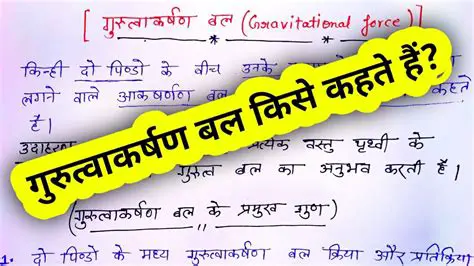 [ गुरुत्वाकर्षण बल (Gravitational force) ]
किन्ही दो पिण्डो के बीच उनके
लगने वाले आकर्षण बल कहते
है।
गुरुत्वाकर्षण बल किसे कहते हैं?
उदाहरण प्रत्येक वस्तु पृथ्वी के
गुरुत्व बल का अनुभव करती है।
(गुरुत्वाकर्षण बल के प्रमुख गुण)
1. दो पिण्डो के मध्य गुरुत्वाकर्षण बल क्रिया और प्रतिक्रिया